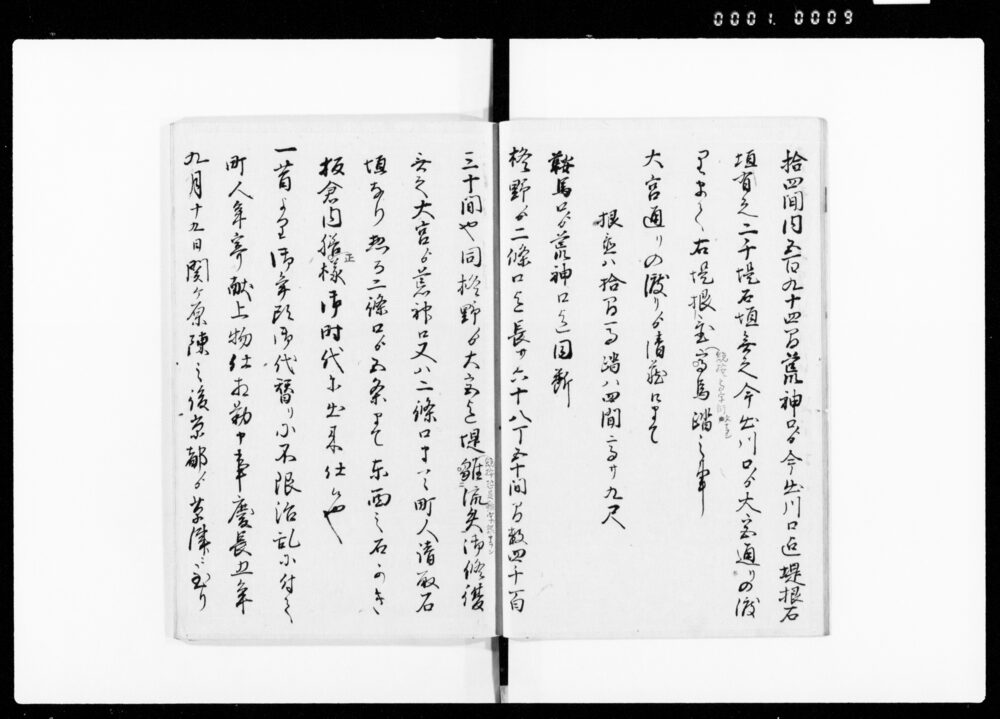 0001.0009
拾四間内五百九十四間荒神口ゟ今出川口迄堤根石
垣有之二千堤石垣無之今出川口ゟ大宮通りの渡
り右堤根置馬踏之事
大宮通りの渡りゟ清蔵口まて
根置八拾間馬踏八四間高サ九尺
鞍馬口ゟ荒神口迄同断
柊野ゟ二條口迄長サ六十八丁五十間間数四千百
三十間也同柊野ゟ大宮迄堤雖流失御修覆
無之大宮ゟ荒神口又八二條口まて町人請取石
垣なり然る二條口ゟ五条まて東西之石かき
板倉内膳正様御時代ニ出来仕候也
一昔より御年頭御代替り不限治乱ニ付候
町人年寄献上物仕相勤申事慶長五年
九月十九日関ヶ原陳之後京都ゟ草津ニ至り